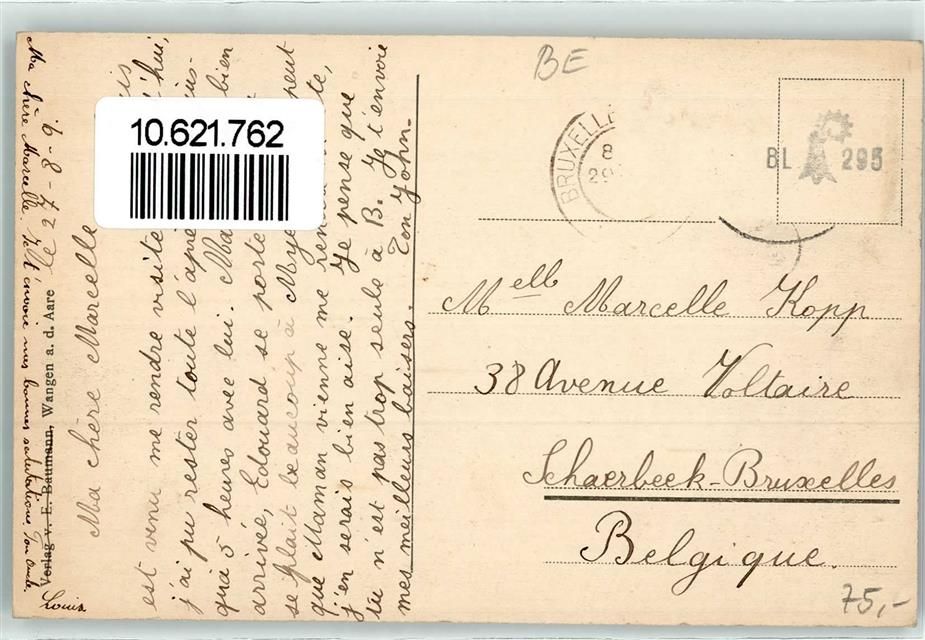 BE
10.621.762
BRUXELLE
8
29
BL 295
le 27-8-9.
Ma chère Marcelle
est venu me rendre visite
j'ai pu rester toute l'après
qu'à 5 heures avec lui. Ma bien
arrivée, Edouard se porte
se plait beaucoup à Mye peut
que Maman vienne me rendre
j'en serais bien aise. Je pense que
tu n'est pas trop seule à B. Je t'envoie
mes meilleurs baisers. Ton John.
Ma chère Marcelle. Je t'envoie mes bonnes salutations, Ton Oncle
Louis
Verlag v. E. Baumann, Wangen a. d. Aare
Melle Marcelle Kopp
38 Avenue Voltaire
Schaerbeek-Bruxelles
Belgique.
75,-